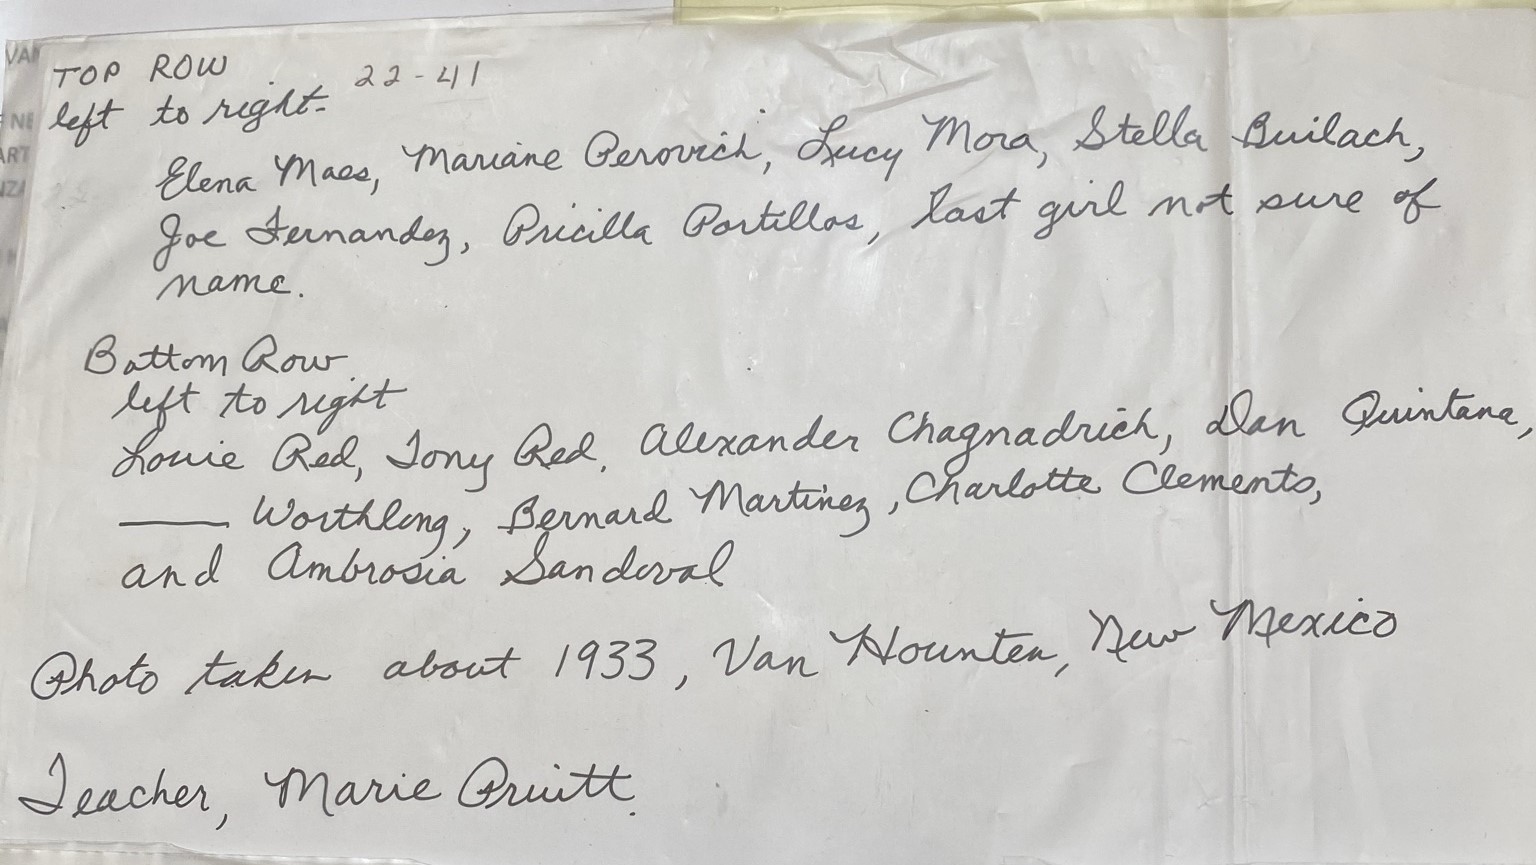 TOP ROW 22-41
left to right-
Elena Maes, Mariane Perovich, Lucy Mora, Stella Builach,
Joe Fernandez, Pricilla Portillos, last girl not sure of
name.
Bottom Row
left to right
Louie Red, Tony Red, Alexander Chagnadrich, Dan Quintana,
____ Worthlong, Bernard Martinez, Charlotte Clements,
and Ambrosia Sandoval
Photo taken about 1933, Van Hounten, New Mexico
Teacher, Marie Pruitt.